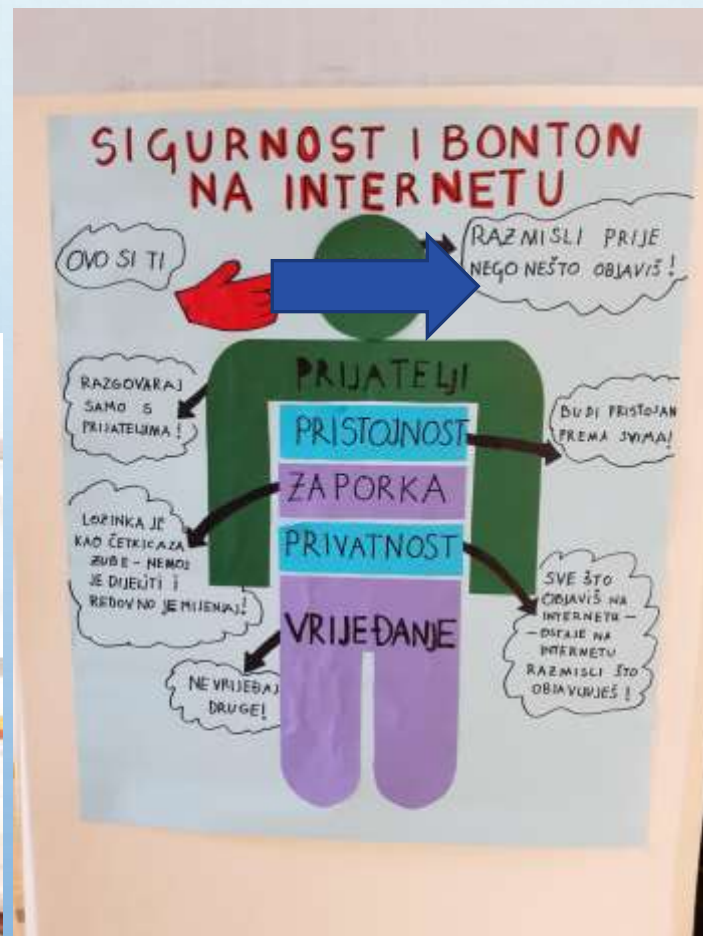 SIGURNOST I BONTON
NA INTERNETU
OVO SI TI
RAZMISLI PRIJE
NEGO NEŠTO OBJAVIŠ!
PRIJATELJI
RAZGOVARAJ
SAMO S
PRIJATELJIMA!
PRISTOJNOST
BUDI PRISTOJAN
PREMA SVIMA!
ZAPORKA
LOZINKA JE
KAO ČETKICA ZA
ZUBE - NEMOJ
JE DIJELITI I
REDOVNO JE MIJENJAJ!
PRIVATNOST
SVE ŠTO
OBJAVIŠ NA
INTERNETU -
- OSTAJE NA
INTERNETU
RAZMISLI ŠTO
OBJAVLJUJEŠ!
VRIJEĐANJE
NE VRIJEĐAJ
DRUGE!